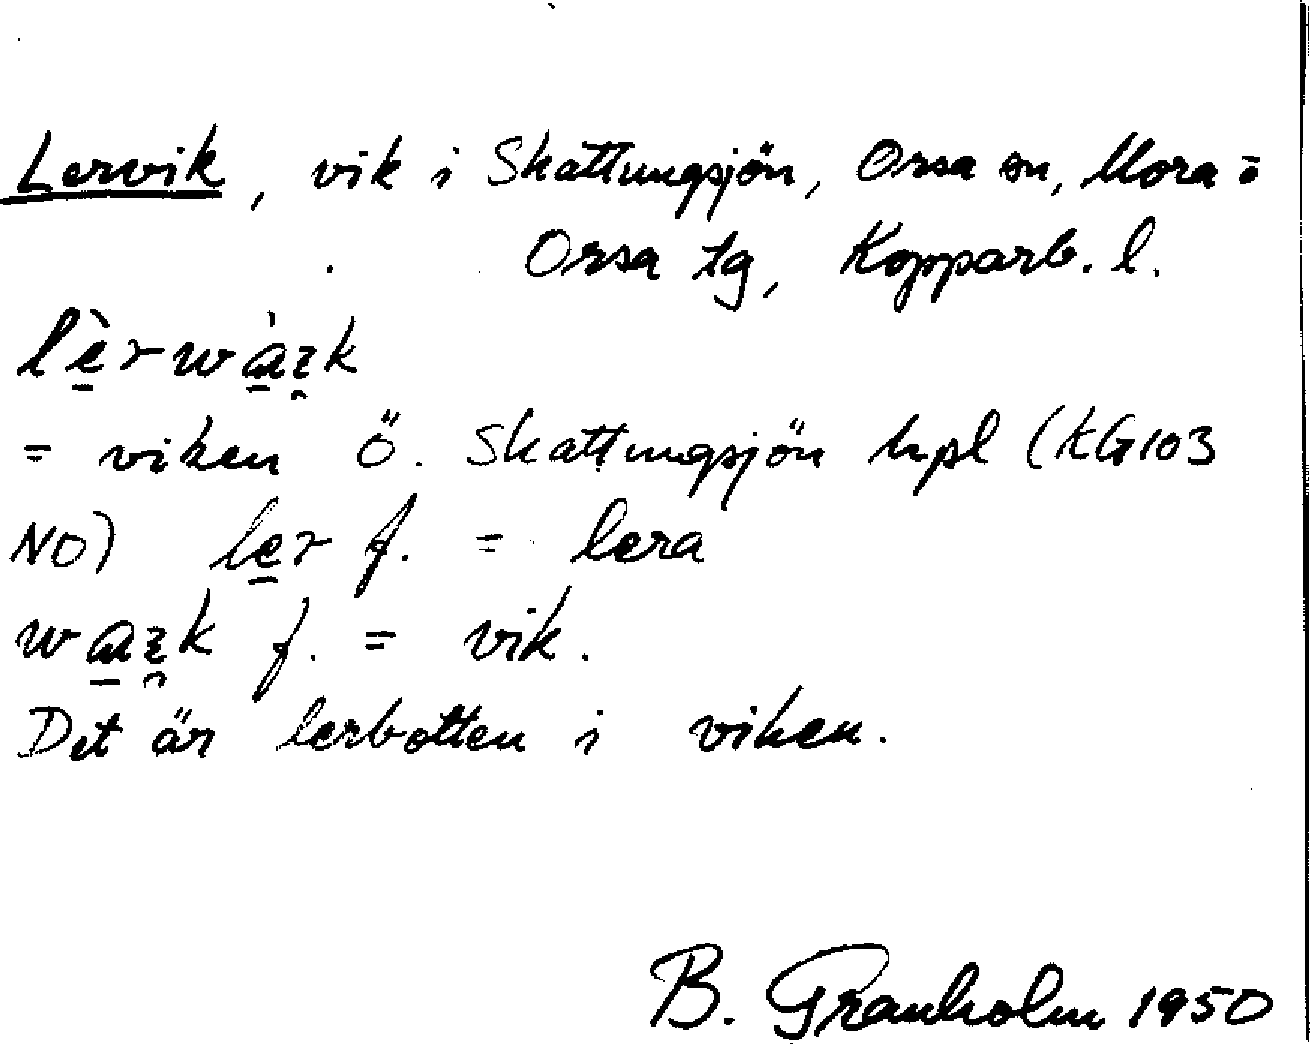 Lervik, vik i Skattungsjön, Orsa sn, Mora=
Orsa tg, Kopparb. l.
lèrwàzk
= viken Ö. Skattungsjön hpl (KG103
NO) ler f. = lera
wazk f. = vik.
Det är lerbotten i viken.
B. Granholm 1950